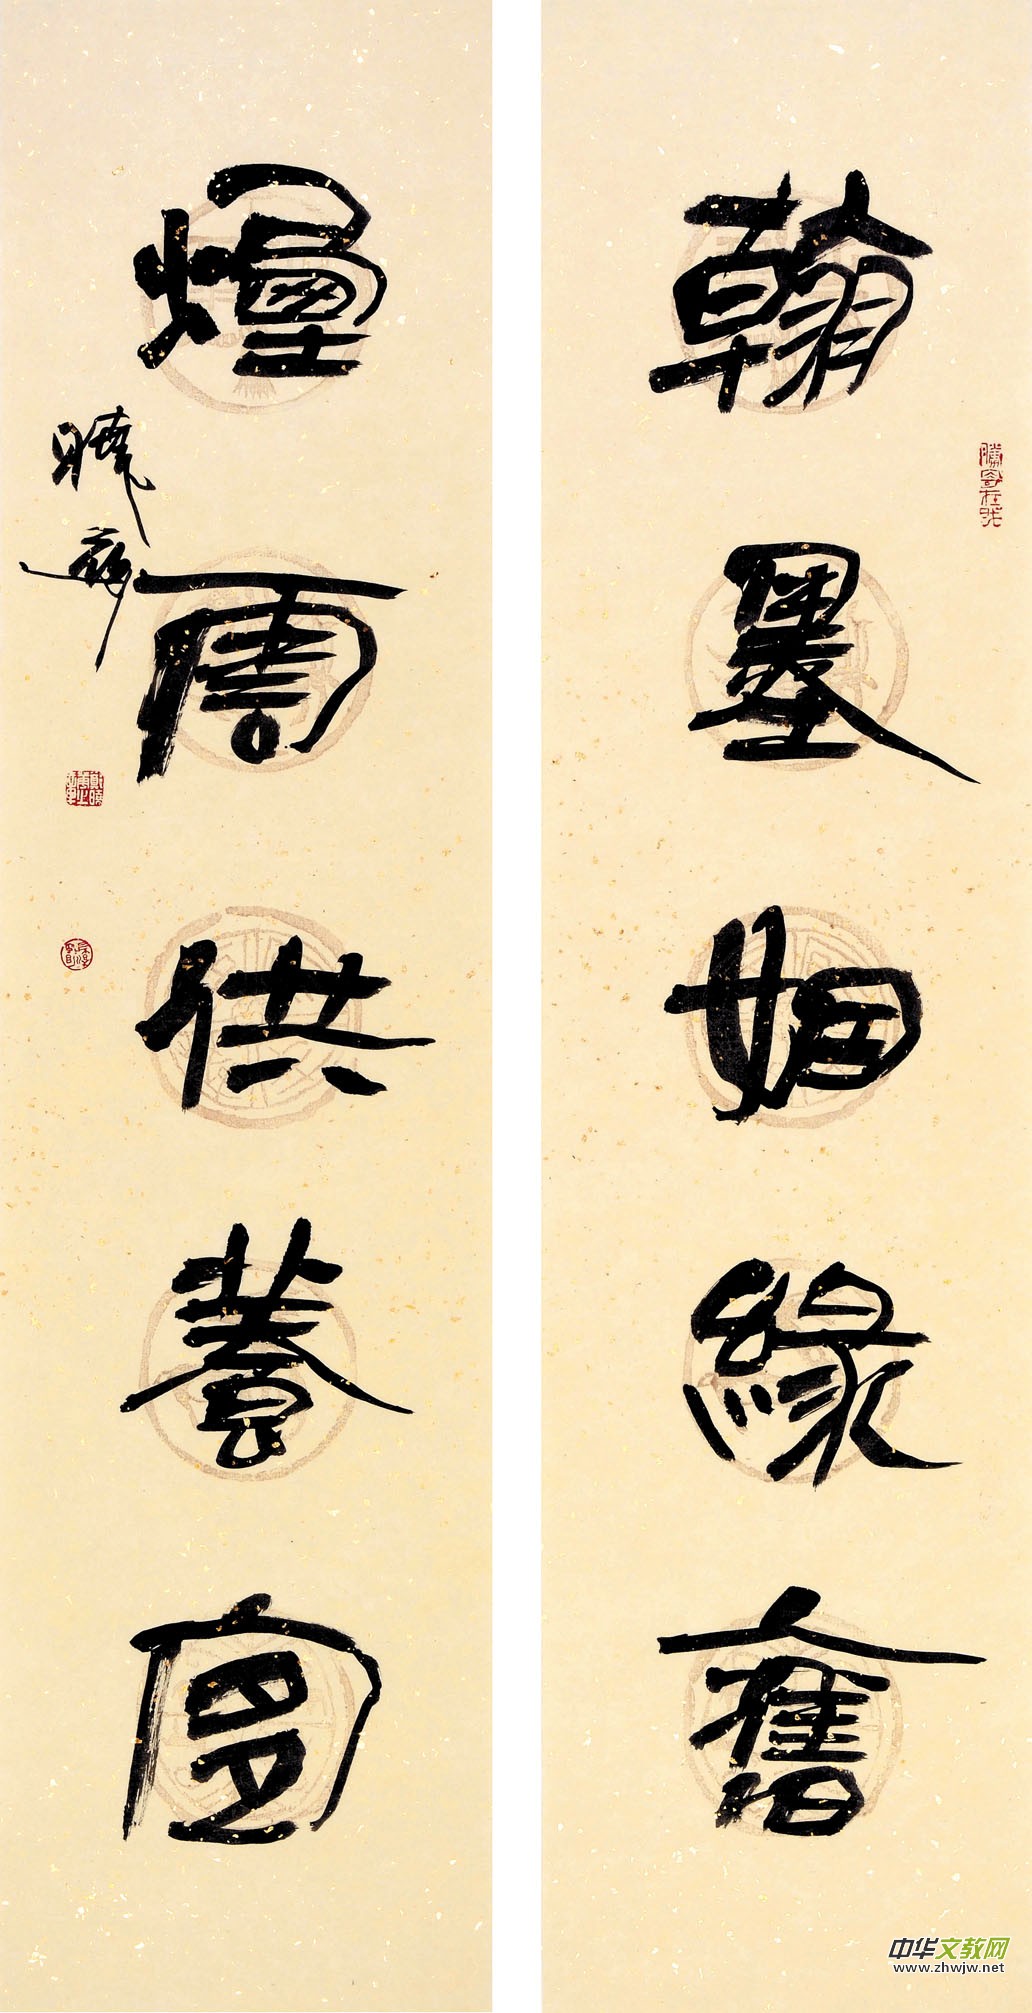 翰墨姻緣舊
煙雲供養宜
曉
中华文教网
www.zhwjw.net